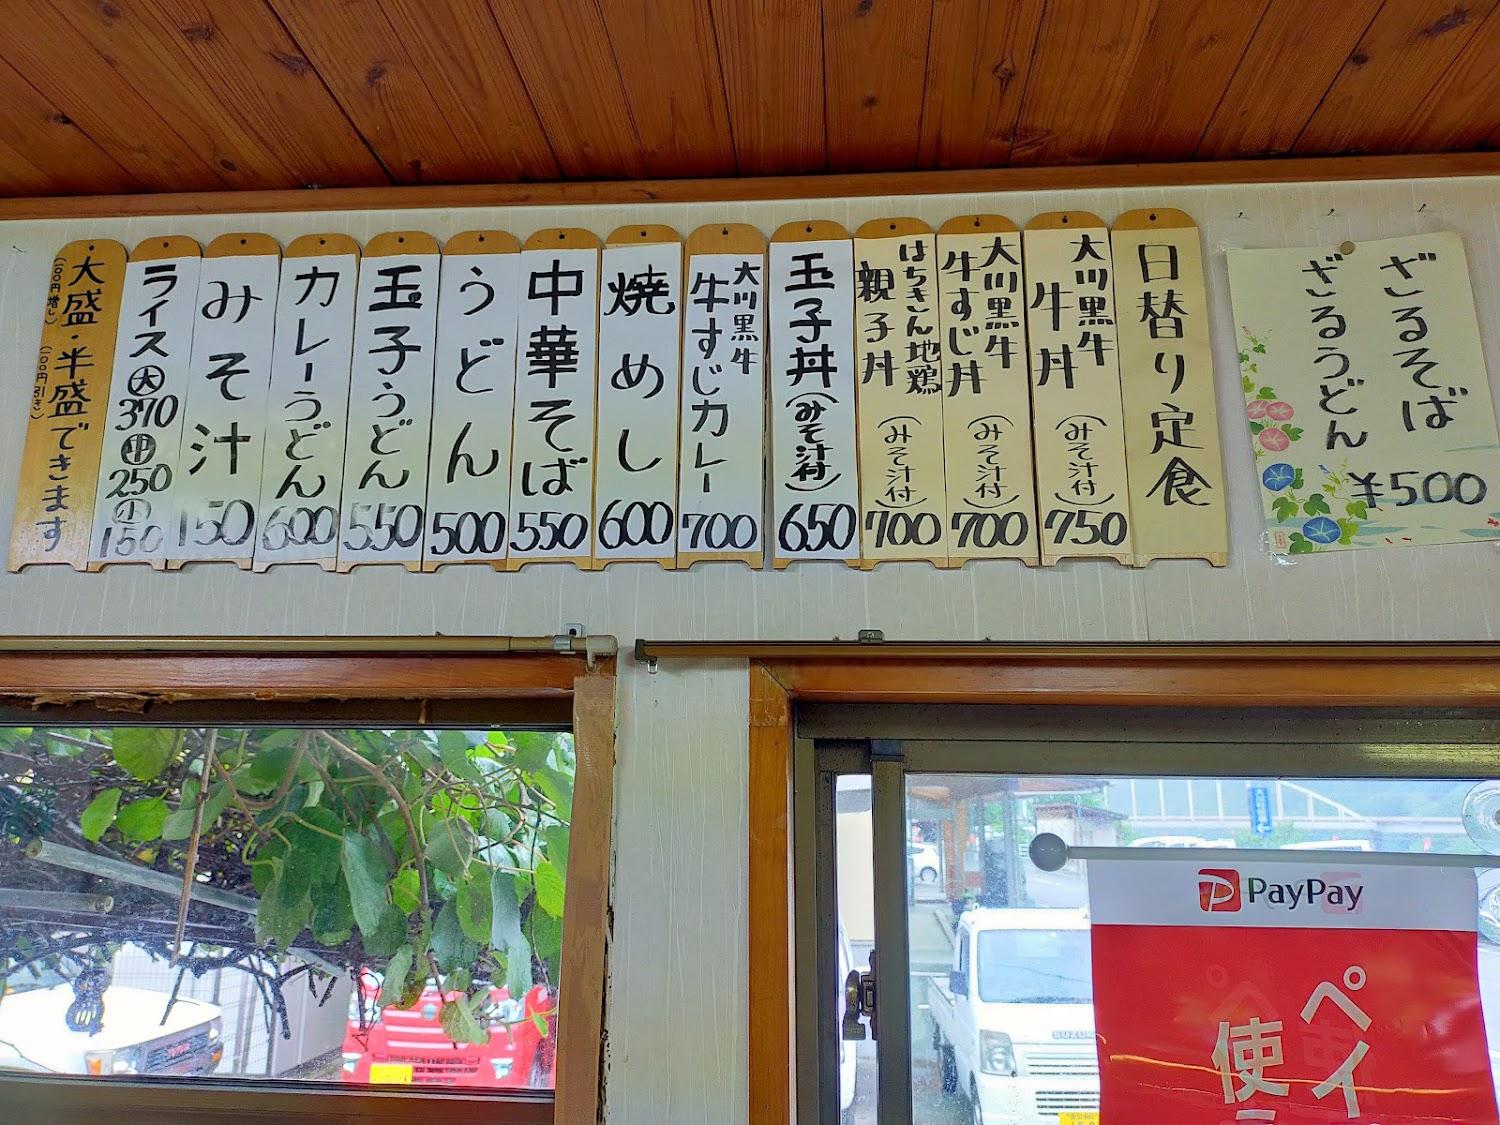 ざるそば
ざるうどん
¥500
日替り定食
大川黒牛
牛丼
(みそ汁付)
750
大川黒牛
牛すじ丼
(みそ汁付)
700
はちきん地鶏
親子丼
(みそ汁付)
700
玉子丼(みそ汁付)
650
大川黒牛
牛すじカレー
700
焼めし
600
中華そば
550
うどん
500
玉子うどん
550
カレーうどん
600
みそ汁
150
ライス大
370
中
250
小
150
大盛・半盛できます
(100円増し)
(100円引き)
PayPay
ペイ
使
SUZUKI